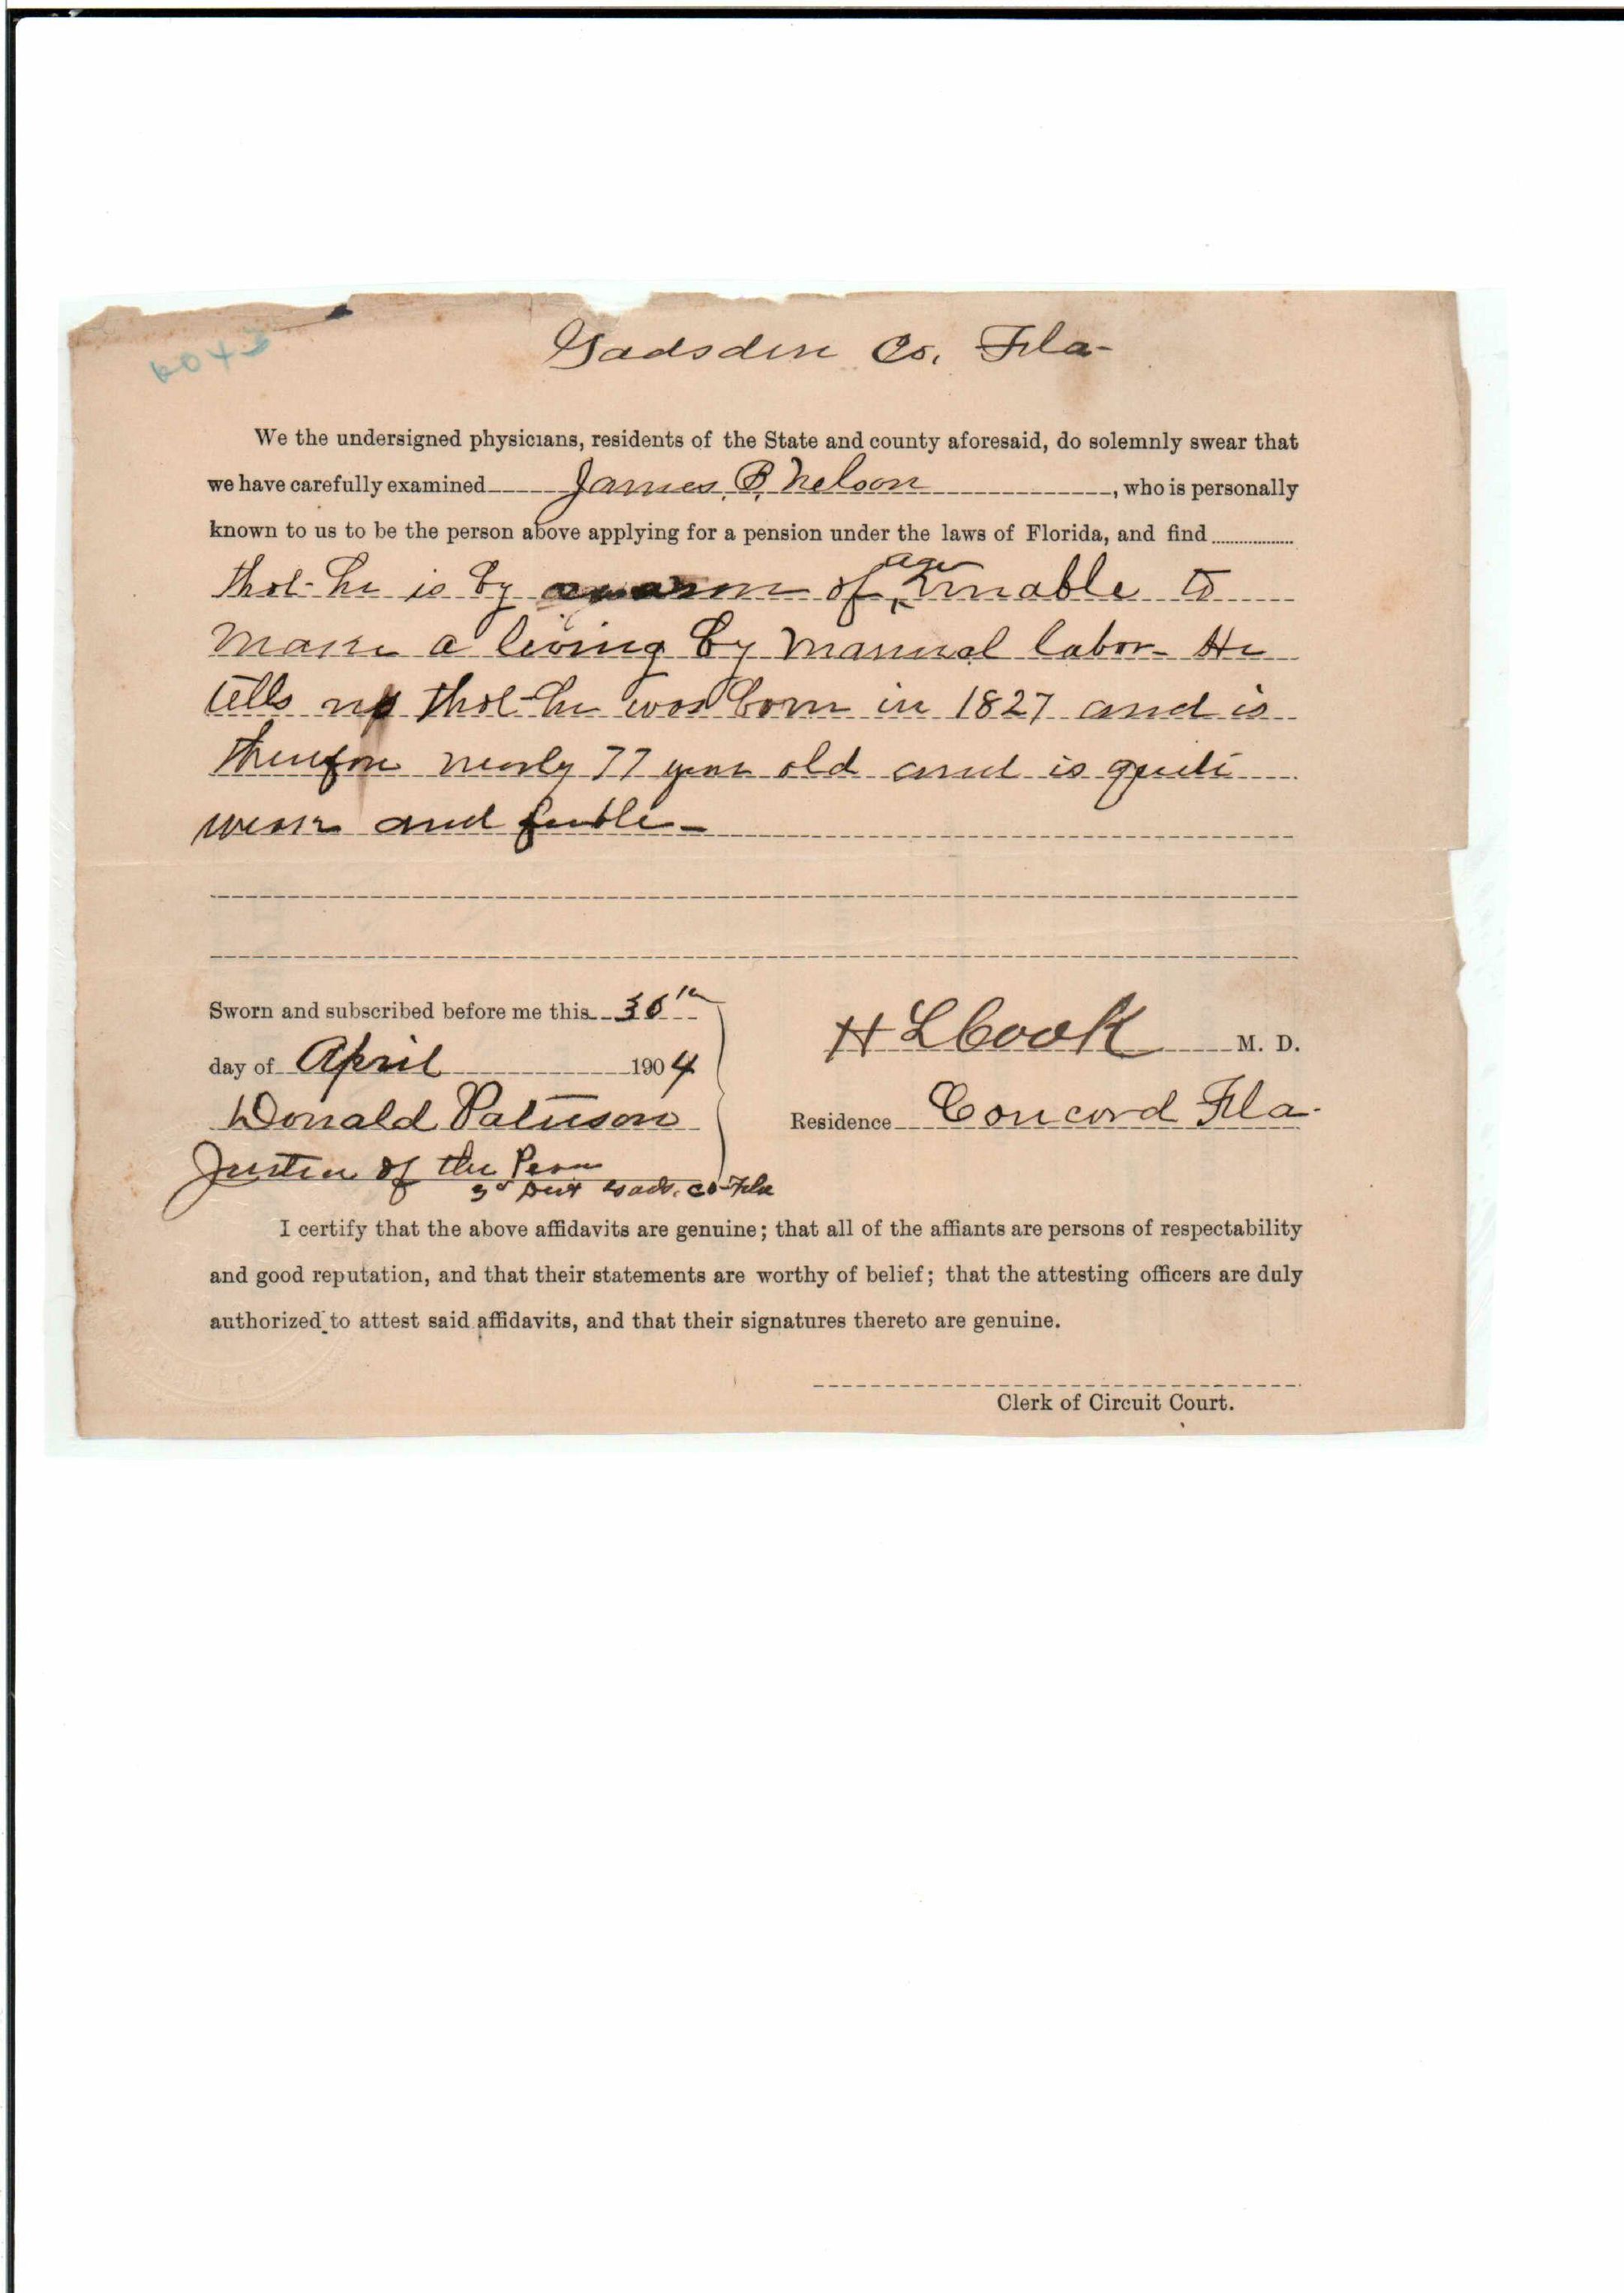 Gadsden Co. Fla-
We the undersigned physicians, residents of the State and county aforesaid, do solemnly swear that
we have carefully examined James. B. Nelson, who is personally
known to us to be the person above applying for a pension under the laws of Florida, and find
that he is by reason of age unable to
make a living by manual labor- He
tells us that he was born in 1827 and is
therefore nearly 77 years old and is quite
weak and feeble-
Sworn and subscribed before me this 30th
day of April 1904
Donald
Justice of the Peace
3d Dist Gads. Co-Fla
H L Cook M. D.
Residence Concord Fla.
I certify that the above affidavits are genuine; that all of the affiants are persons of respectability
and good reputation, and that their statements are worthy of belief; that the attesting officers are duly
authorized to attest said affidavits, and that their signatures thereto are genuine.
Clerk of Circuit Court.